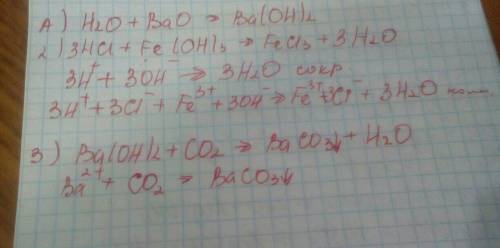 1) H₂O + BaO → Ba(OH)₂
2) 3HCl + Fe(OH)₃ → FeCl₃ + 3H₂O
3H⁺ + 3OH⁻ → 3H₂O сокр
3H⁺ + 3Cl⁻ + Fe³⁺ + 3OH⁻ → Fe³⁺ 3Cl⁻ + 3H₂O полн.
3) Ba(OH)₂ + CO₂ → BaCO₃↓ + H₂O
Ba²⁺ + CO₂ → BaCO₃↓